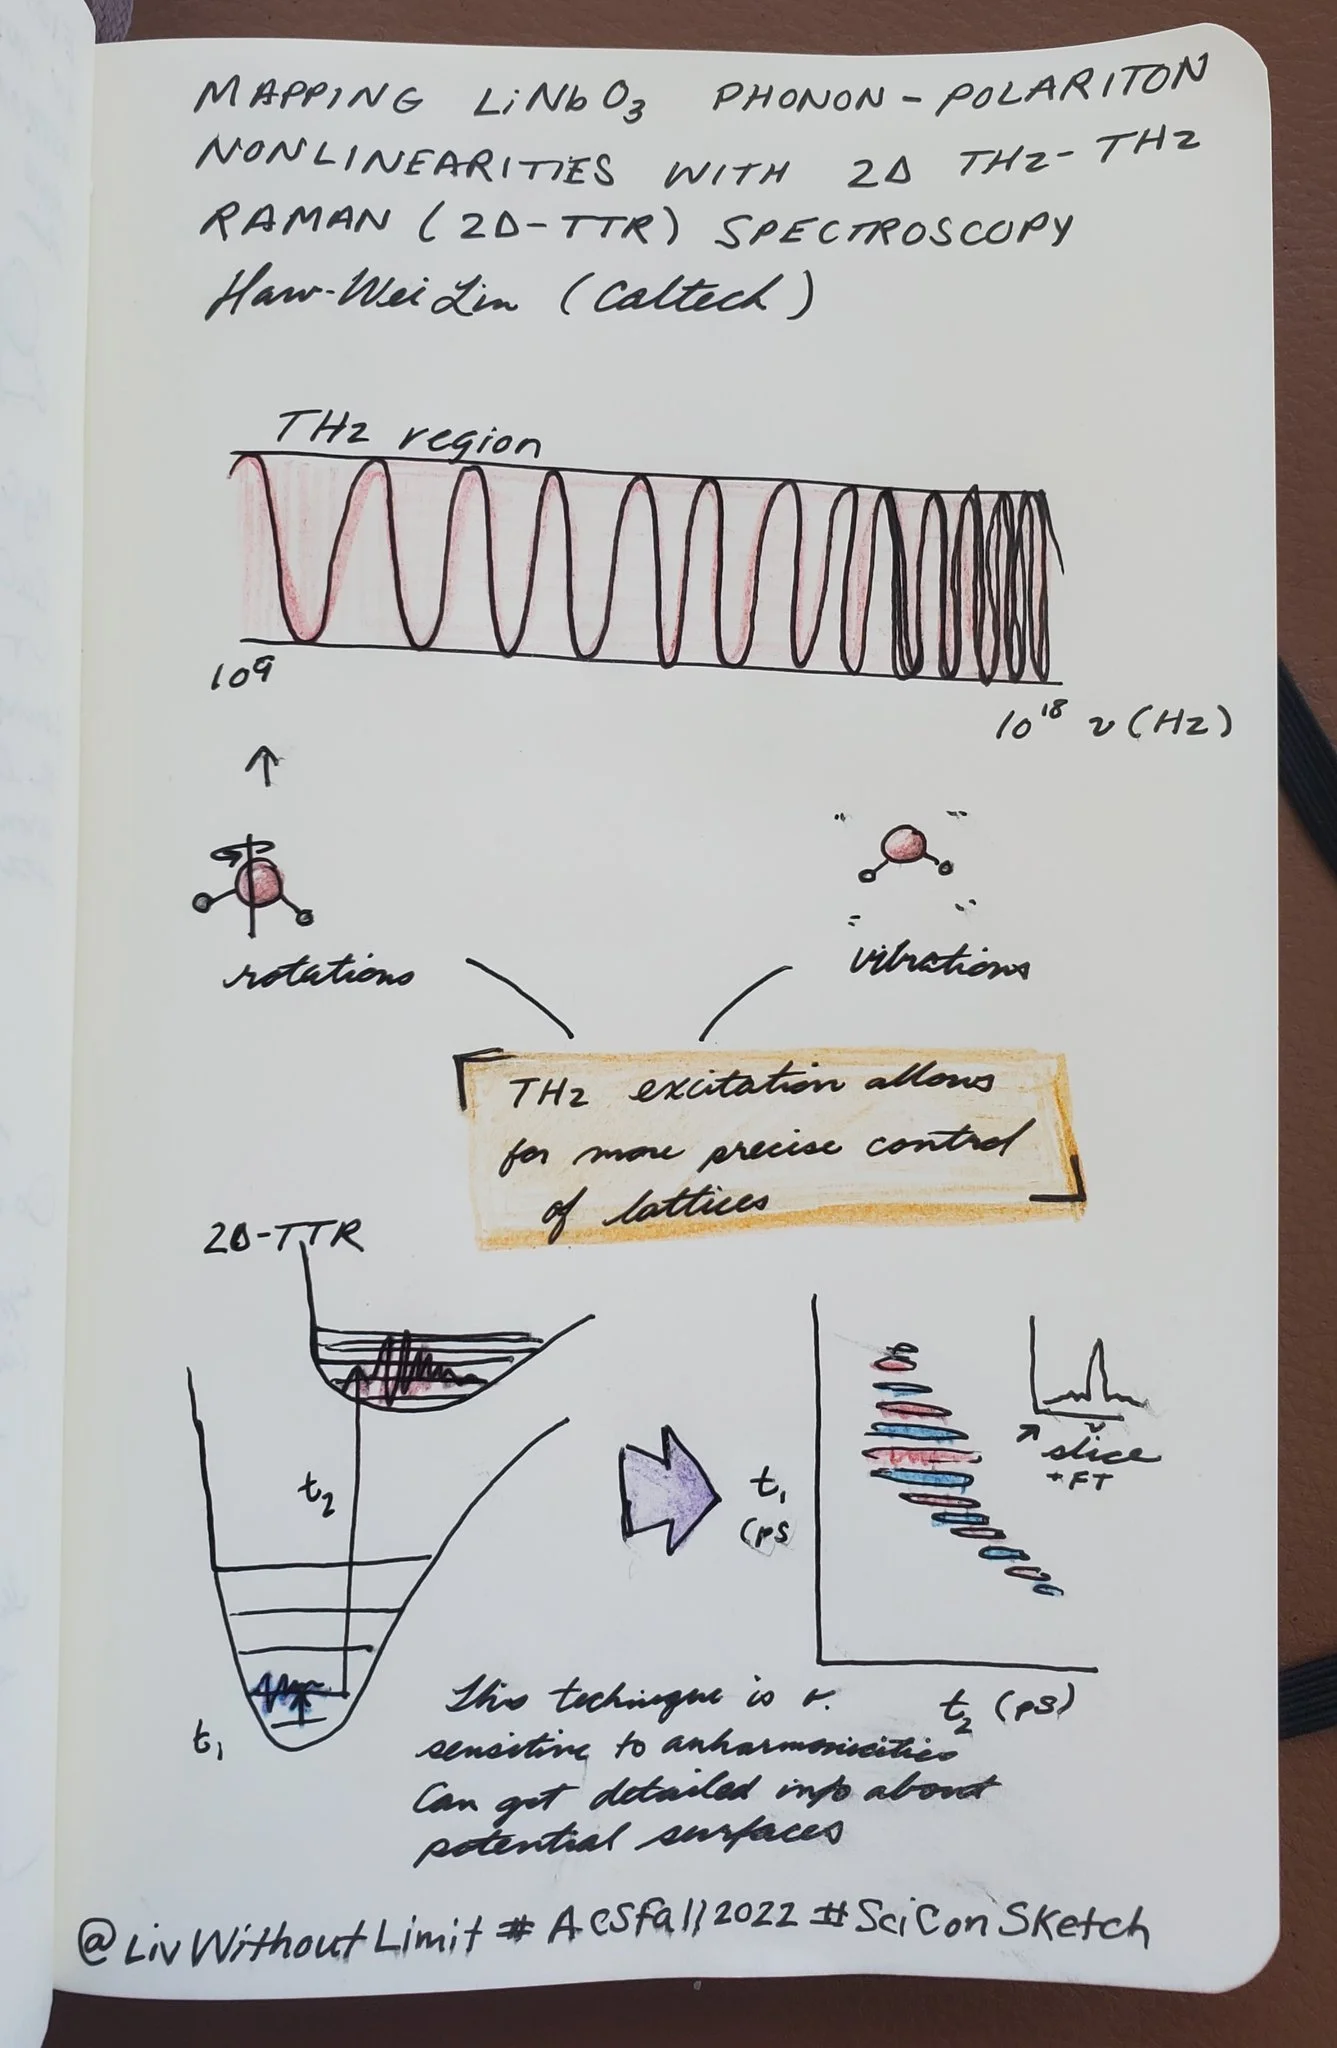 MAPPING LiNbO₃ PHONON-POLARITON
NONLINEARITIES WITH 2D THz-THz
RAMAN (2D-TTR) SPECTROSCOPY
Haw-Wei Lin (Caltech)
THz region
10⁹
10¹⁸ ν (Hz)
rotations
vibrations
THz excitation allows
for more precise control
of lattices
2D-TTR
t₂
t₁
t₁
(ps
t₂ (ps)
ν
slice
+ FT
This technique is v.
sensitive to anharmonicities
Can get detailed info about
potential surfaces
@LivWithoutLimit #ACSFall2022 #SciConSketch